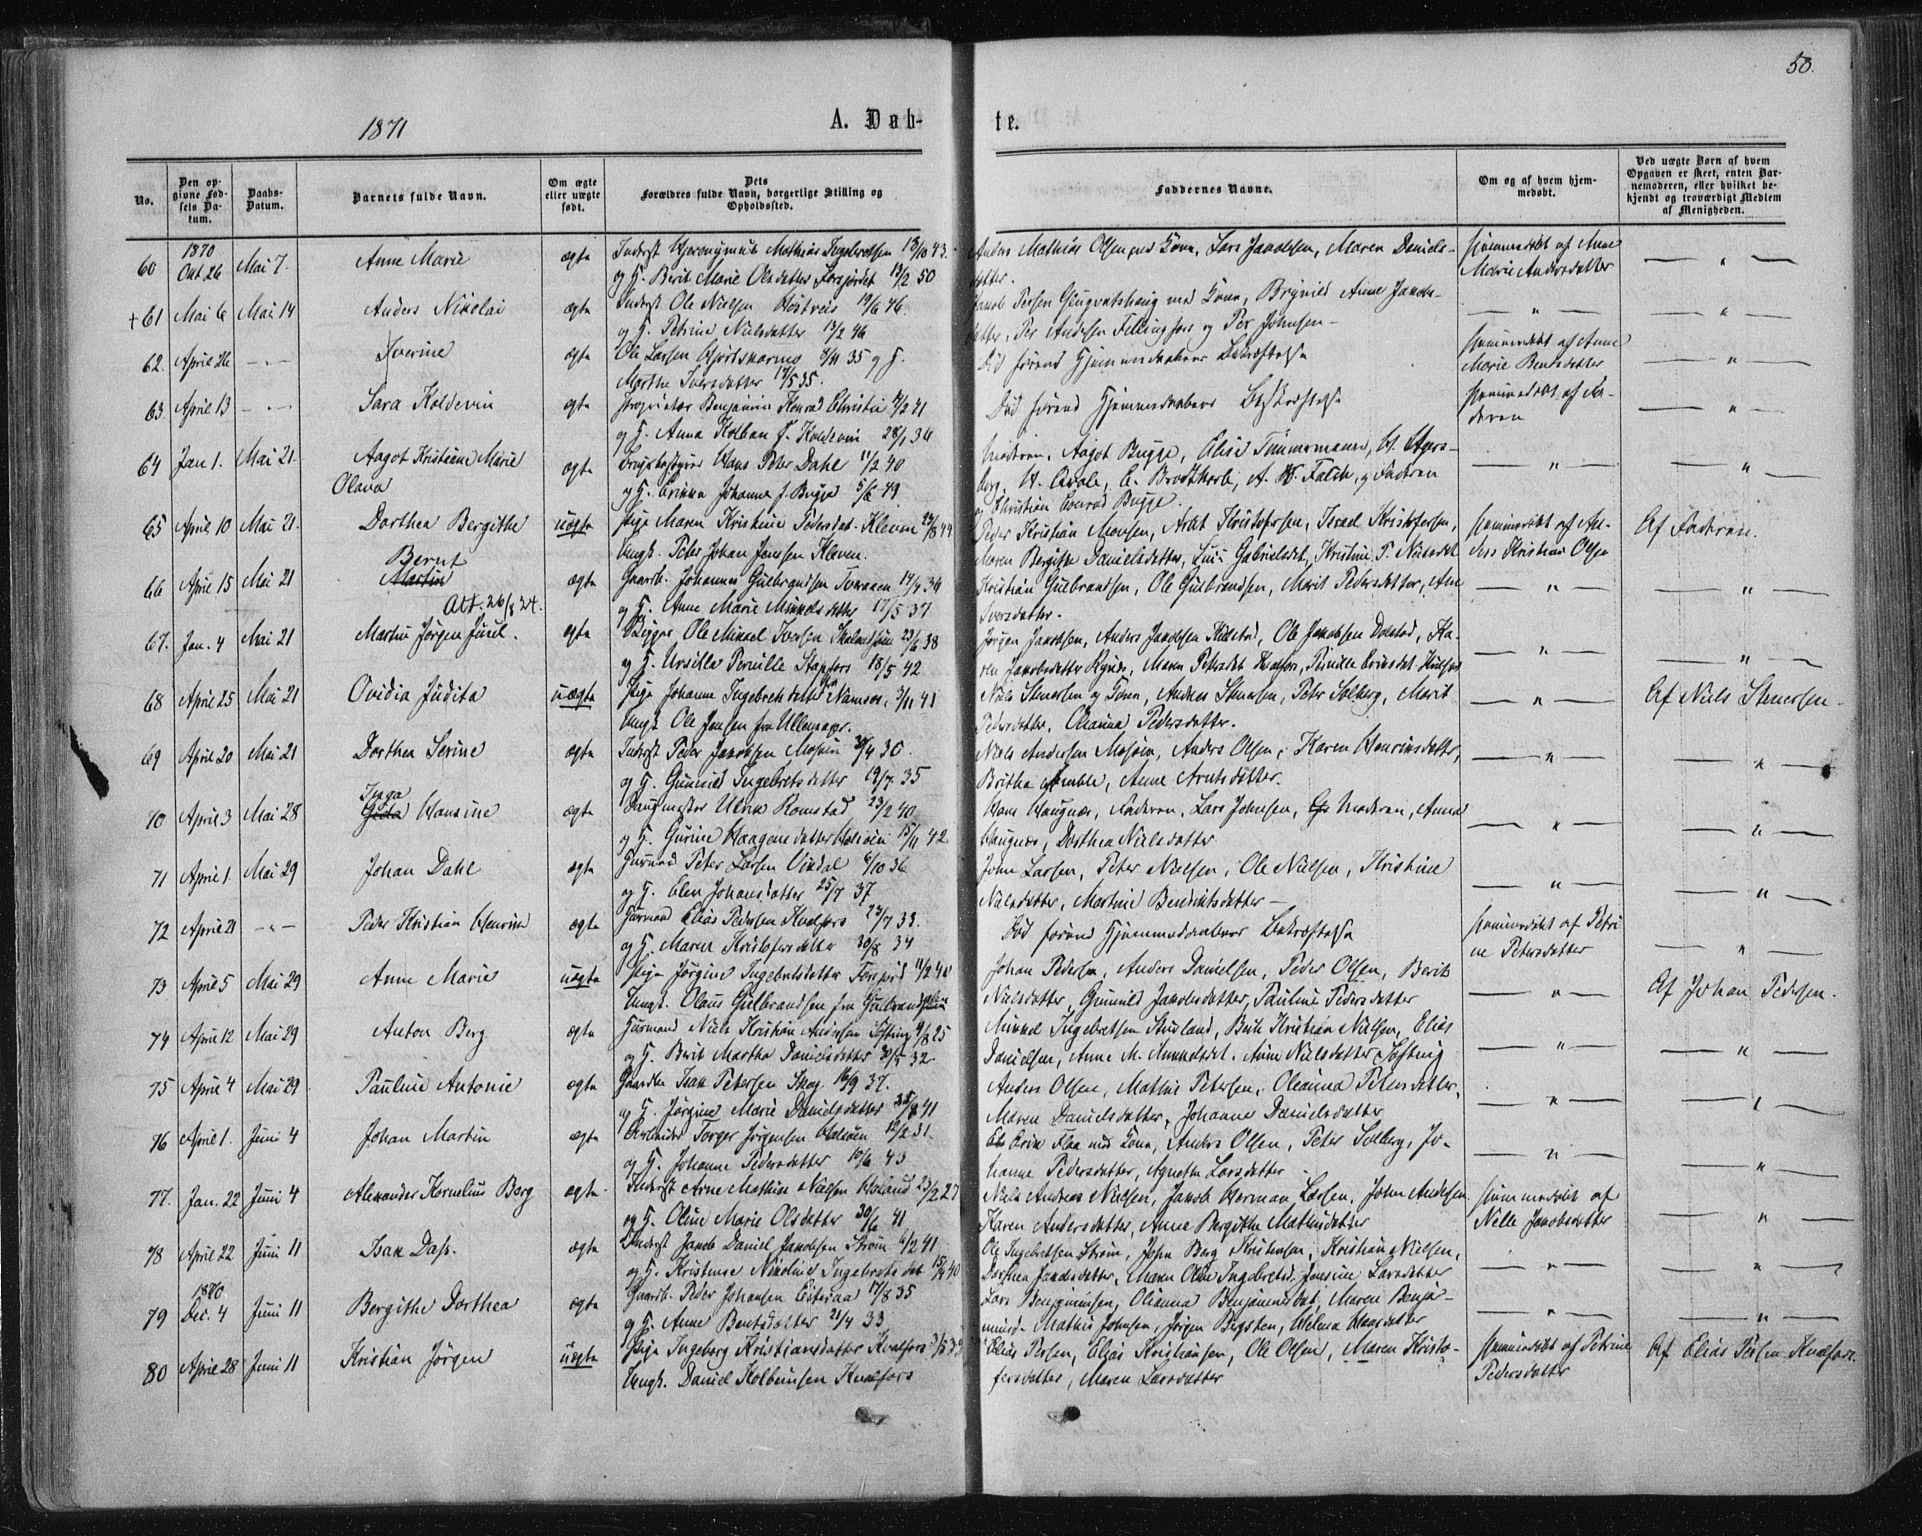 50.
1871
A. Døb-
te.
No.
Den op-
givne Fød-
sels Da-
tum.
Daabs-
Datum.
Barnets fulde Navn.
Om ægte
eller uægte
født.
Dets
Forældres fulde Navn, borgerlige Stilling og
Opholdssted.
Faddernes Navne.
Om og af hvem hjem-
medøbt.
Ved uægte Børn af hvem
Opgaven er skeet, enten Bar-
nemoderen, eller hvilket be-
kjendt og troværdigt Medlem
af Menigheden.
60 1870 Okt. 26 Mai 7. Anne Marie ægte Inderst Hjeronymus Mathias 13/10 43.
og H. Berit Marie Olsdatter Forsjordet 13/2 50
Anders Mathias Olsen med Kone, Lars Jakobsen, Maren Daniels-
datter.
Hjemmedøbt af Anne
Marie Andersdatter
+ 61 Mai 6 Mai 14 Anders Nikolai ægte Inderst Ole Nielsen 19/6 46.
og H. Petrine Nielsdatter 13/2 46
med Kone, Brynild Anne Jakobs-
datter, Per Andersen Fellingfors og Per Johnsen
62. April 26 Iverine ægte Ole Larsen 8/11 35 og H.
Marthe Iversdatter 17/5 35.
Død førend Hjemmedaabens Bekræftelse
Hjemmedøbt af Anne
Marie Bentsdatter
63. April 13 Sara Koldevin ægte Proprietær Benjamin Konrad Christie 4/2 41
og H. Anna Kolban f. Koldevin 28/1 34
Død førend Hjemmedaabens Bekræftelse
Hjemmedøbt af Fa-
deren
64 Jan 1. Mai 21. Aagot Kristiane Marie
Olava
ægte Brugsbestyrer Hans Peter Dahl 11/2 40
og H. Erikka Johanne f. Bugge 5/6 49
Moderen, Aagot Bugge, Elise Timmermann,
E. Brodtkorb, A. Falch, og Faderen
og Christian Conrad Bugge.
65 April 10 Mai 21. Dorthea Bergithe uægte Pige Maren Kristine Pedersdat. Kleven 24/8 44
Ungk. Peter Johan Jensen Kleven.
Peder Kristian Monsen, Arnt Kristofersen, Israel Kristofersen,
Maren Bergitte Danielsdatter, Gabrielsdat, Kristine P. Nielsdat
Hjemmedøbt af An-
ders Kristian Olsen
Af Faderen.
66 April 15 Mai 21 Bernt
Martin
Att. 26/8 24.
ægte Gaardb. Johannes Gulbrandsen Tveraaen 14/4 36
og H. Anne Marie Mikkelsdatter 17/5 37
Kristian Gulbrandsen, Ole Gulbrandsen, Marit Pedersdatter, Ane
Iversdatter.
67. Jan. 4 Mai 21 Martin Jørgen Juul. ægte Ole Mikkel Iversen 23/6 38
og H. Ursilla Pernille Stapfors 18/5 42
Jørgen Jakobsen, Anders Jakobsen, Ole Jakobsen Dolstad, Ka-
ren Jakobsdatter, Maren
68 April 25 Mai 21 Ovidia Judita uægte Pige Johanne Ingebrektsdatter fra Namsos, 3/11 41
Ungk. Ole Jensen fra Ullensager.
Niels Stenersen og Kone, Anders Stenersen, Peter Solberg, Marit
Pedersdatter, Oleanna Pedersdatter.
Af Niels Stenersen
69 April 20 Mai 21 Dorthea Serine ægte Inderst Peder Jakobsen Mosjøen 30.
og H. Gunnild Ingebretsdatter 19/7 35
Niels Andersen Mosjøen, Anders Olsen, Karen Henriksdatter,
Britha Amble, Anne Arntsdatter.
70 April 3 Mai 28 Inga
Gida Hansine
ægte Saugmester Ulrik Romstad 23/2 40
og H. Gurine Haagensdatter Halsøen 15/11 42
Hans Haugnæs, Faderen, Lars Johnsen, Moderen, Anna
Haugnæs, Dorthea Nielsdatter
71 April 1 Mai 29 Johan Dahl ægte Gaardmand Peter Larsen 6/10 36
og H. Elen Johansdatter 25/7 37
John Larsen, Peter Nielsen, Ole Nielsen, Kristine
Nielsdatter, Martine Bendiktsdatter
72 April 21 Peder Kristian Henrik ægte Huusmand Elias Pedersen Kvalfors 23/7 33.
og H. Maren Kristofersdatter 30/8 34
Død førend Hjemmedaabens Bekræftelse
Hjemmedøbt af Petri-
ne Petersdatter
73 April 5 Mai 29 Anne Marie uægte Pige Jørgine Ingebretsdatter Forsjord 11/2 40
Ungk. Olaus Gulbrandsen fra Gudbrandsdalen
Johan Pedersen, Anders Danielsen, Peder Olsen, Berit
Nielsdatter, Gunnild Jakobsdatter, Pauline Pedersdatter
Af Johan Pedersen.
74 April 12 Mai 29 Anton Berg ægte Huusmand Niels Kristian Andersen Softing 9/8 25
og H. Berit Martha Danielsdatter 30/5 32.
Mikkel Ingebretsen, Kristian Nielsen, Elias
Danielsen, Anne M. Mikkelsdat. Anne Nielsdatter Softing
75 April 4 Mai 29 Pauline Antonie ægte Gaardbr. Isak Petersen Skog 16/9 37.
og H. Jørgine Marie Danielsdatter 25/8 41
Anders Olsen, Mathis Petersen, Oleanna Petersdatter,
Maren Danielsdatter, Johanne Danielsdatter
76 April 1. Juni 4 Johan Martin ægte Torger Jørgensen Halsøen 12/2 31.
og H. Johanne Pedersdatter 10/6 43
Erik Flaa med Kone, Anders Olsen, Peter Solberg, Jo-
hanne Pedersdatter, Agnethe Larsdatter
77. Jan. 22 Juni 4 Alexander Kornelius Berg ægte Inderst Arne Mathias Nielsen Holand 23/2 27
og H. Oline Marie Olsdatter 30/6 41
Niels Andreas Nielsen, Jakob Herman Larsen, John Andersen
Karen Andersdatter, Anne Bergithe Mathisdatter
Hjemmedøbt af
Nelle Jakobsdatter
78 April 22 Juni 11 Isak Dass. ægte Inderst Jakob Daniel Jakobsen Strøm 6/2 41
og H. Kristense Nikoline Ingebretsdat 15/9 40
Ole Ingebretsen Strøm, John Berg Kristensen, Kristian Nielsen,
Dorthea Jakobsdatter, Maren Oline Ingebretsd. Jensine Larsdatter
79 1870 Dec. 4 Juni 11 Bergithe Dorthea ægte Gaardb. Peder Johansen Eiteraa 17/8 35
og H. Anne Bentsdatter 21/4 33
Lars Benjaminsen, Oleanna Benjaminsdat, Maren Benja-
minsd. Mathis Johnsen, Jørgen Bergsten, Helena Hansdatter
80 April 28 Juni 11 Kristian Jørgen uægte Pige Ingeborg Kristiansdatter Kvalfors 3/5 34
Ungk. Daniel Kolbeinsen Kvalfors
Elias Persen, Elias Kristiansen, Ole Olsen, Maren Kristo-
fersdatter, Maren Larsdatter
Hjemmedøbt af Petrine
Pedersdatter
Af Elias Persen Kvalfors.